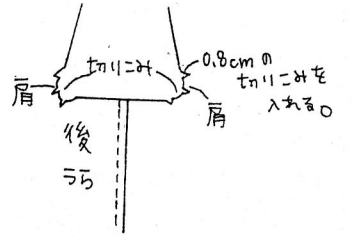 切りこみ
0.8cmの
切りこみを
入れる。
肩
肩
後
うら